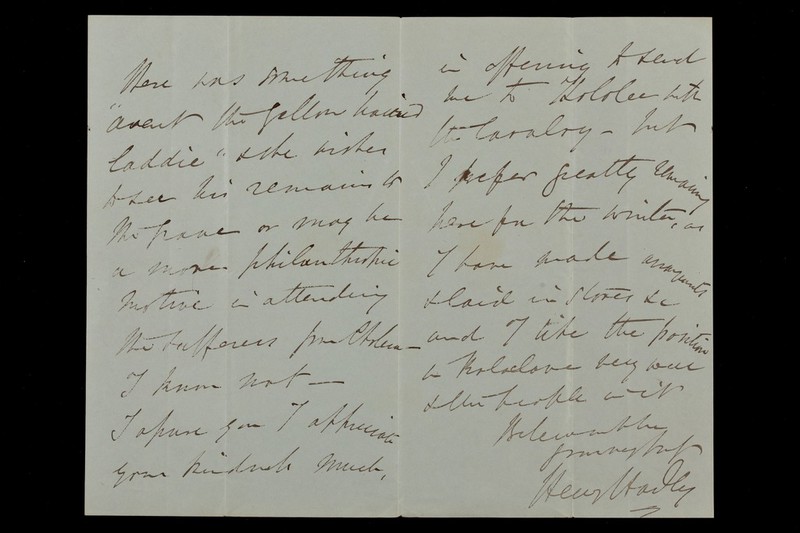 there was something
"avent the Yellow haired
laddie" & she wishes
to see his remains to
the grave or may be
a more philanthropic
motive in attending
the sufferers from Cholera —
I know not —
I assure you I appreciate
your kindness much,
in offering to send
me to with
the Cavalry – but
I prefer greatly remaining
here for the winter, as
I have made
& laid in stores &c
and I like the position
in Balaclava very well
& the people in it
Believe me
Henry Hadley